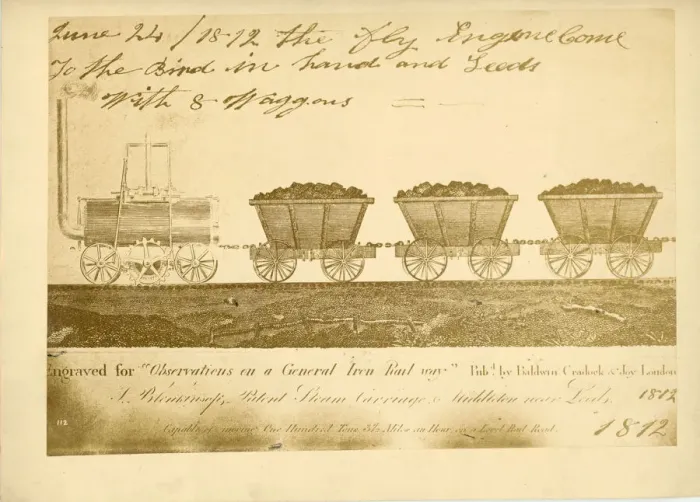 June 24 / 1812 the fly Engine Come
To the Bird in hand and Leeds
With 8 Waggons
Engraved for "Observations on a General Iron Rail way" Pub.d by Baldwin Cradock & Joy London
J. Blenkinsop's, Patent Steam Carriage, Middleton near Leeds. 1812
Capable of moving One Hundred Tons 3½ Miles an Hour, on a Level Rail Road. 1812
112